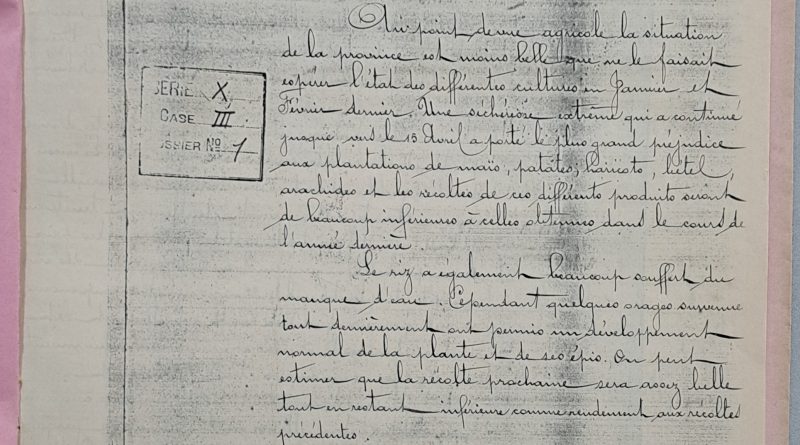 Au point de vue agricole la situation
de la province est moins belle que ne le faisait
espérer l'état des différentes cultures en Janvier et
Février dernier. Une sécheresse extrême qui a continué
jusque vers le 15 Avril a porté le plus grand préjudice
aux plantations de maïs, patates, haricots, bétel,
arachides et les récoltes de ces différents produits seront
de beaucoup inférieures à celles obtenues dans le cours de
l'année dernière.
Le riz a également beaucoup souffert du
manque d'eau. Cependant quelques orages survenus
tout dernièrement ont permis un développement
normal de la plante et de ses épis. On peut
estimer que la récolte prochaine sera assez belle
tout en restant inférieure comme rendement aux récoltes
précédentes.
SERIE X
CASE III
OSSIER No 1